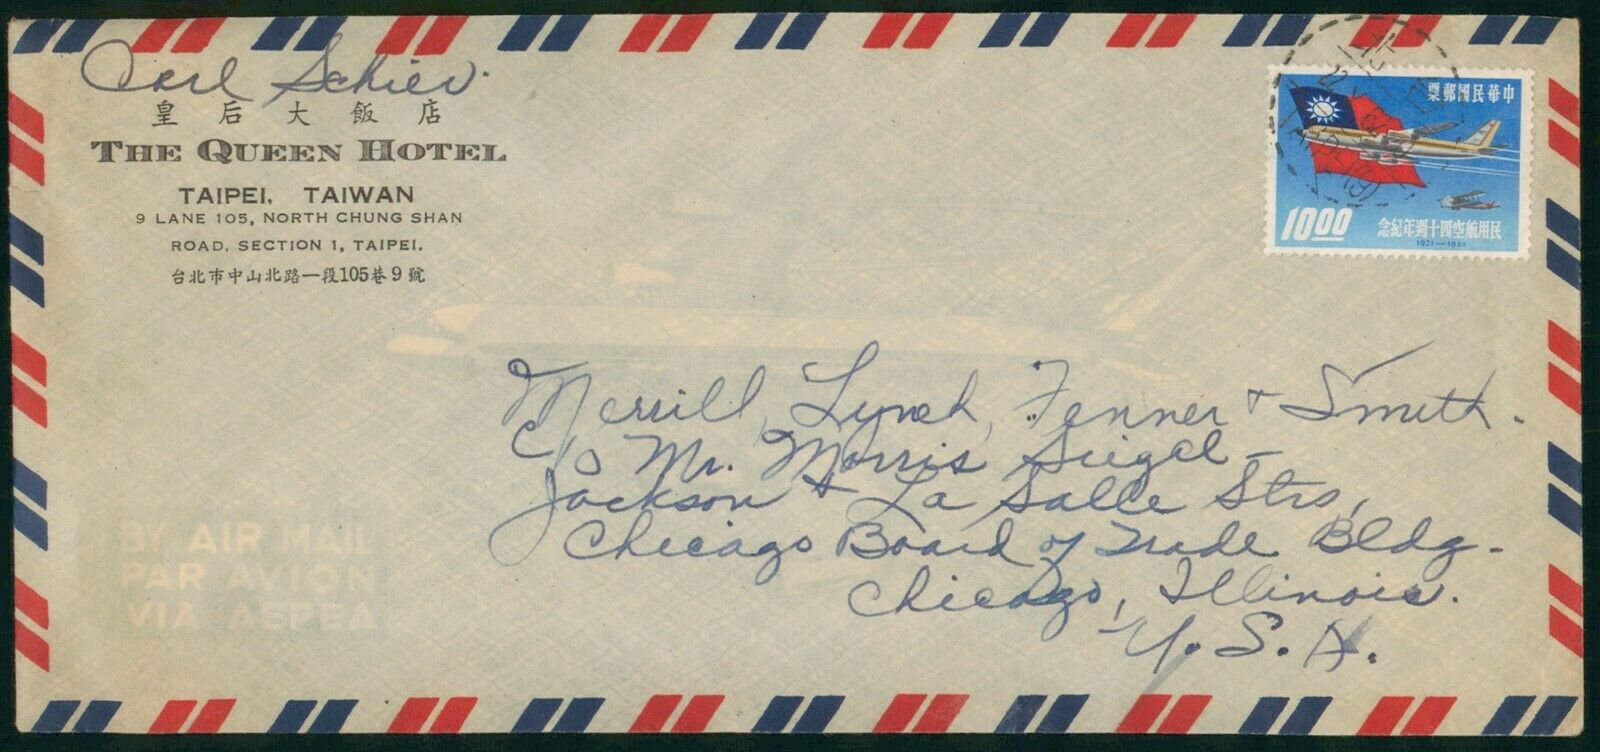 Carl Schier.
皇后大飯店
THE QUEEN HOTEL
TAIPEI, TAIWAN
9 LANE 105, NORTH CHUNG SHAN
ROAD, SECTION 1, TAIPEI.
台北市中山北路一段105巷9號
票郵國民華中
10.00
念紀年週十四空航用民
1921—1961
Merrill, Lynch, Fenner + Smith.
c/o Mr. Morris Siegel -
Jackson + La Salle Strs,
Chicago Board of Trade Bldg.
Chicago, Illinois.
U.S.A.
BY AIR MAIL
PAR AVION
VIA AEREA